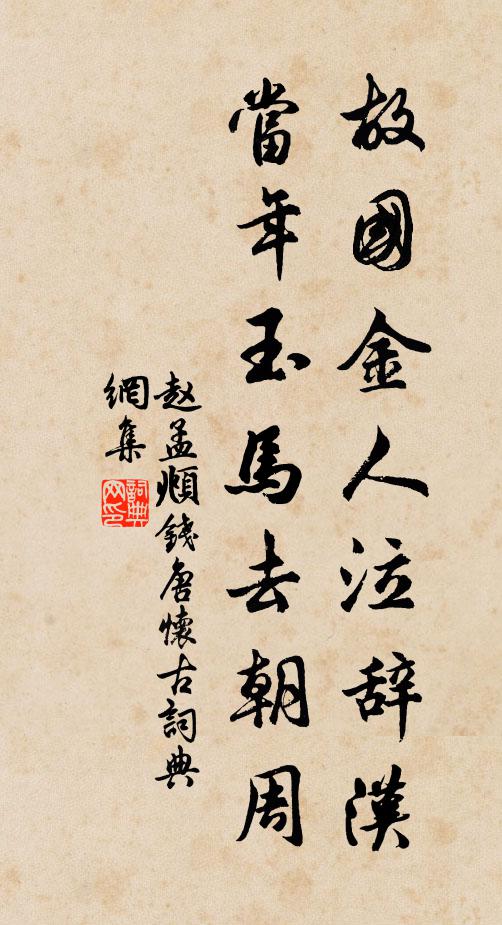 故國金人泣辞漢
當年玉馬去朝周
赵孟頫錢唐懷古詞典
網集
詞典網印